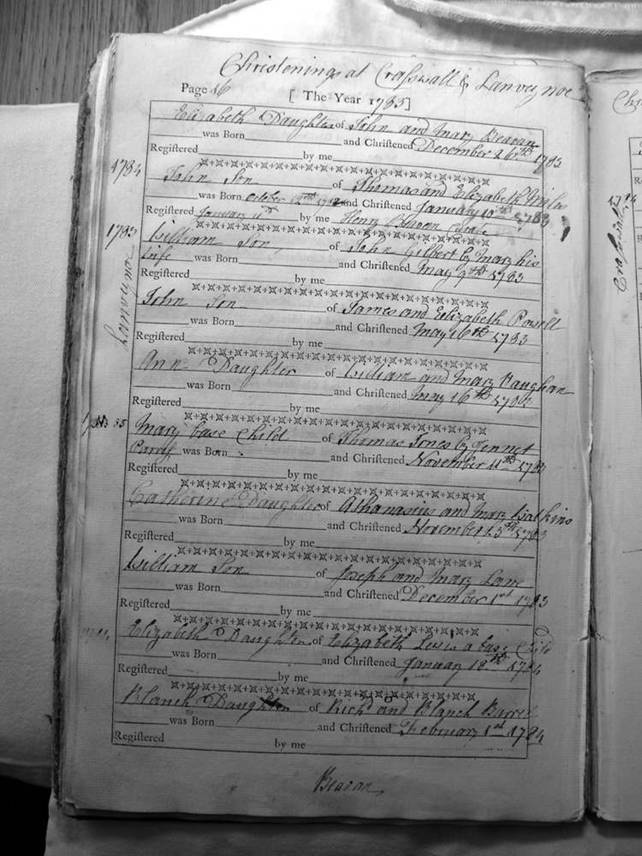 Christenings at Craswall & Lanveynoe
Page 16
[ The Year 1783]
Elizabeth Daughter of John and Mary Beavan
was Born and Christened December 26th 1783
Registered by me
1784
John Son of Thomas and Elizabeth
was Born October and Christened January 1783
Registered January by me Henry Beavan
1783
William Son of John Gilbert by Mary his
wife was Born and Christened May 1783
Registered by me
Lanveynoe
John Son of James and Elizabeth Powell
was Born and Christened May 16th 1783
Registered by me
Ann Daughter of William and Mary Vaughan
was Born and Christened May 16th 1783
Registered by me
Mary base Child of Thomas Jones by Jennet
was Born and Christened November 1783
Registered by me
Catherine Daughter of Athanasius and Mary Watkins
was Born and Christened November 23th 1783
Registered by me
William Son of Joseph and Mary Lane
was Born and Christened December 1st 1783
Registered by me
Elizabeth Daughter of Elizabeth Lewis a base Child
was Born and Christened January 18th 1784
Registered by me
Blanch Daughter of Richd and Blanch
was Born and Christened February 1st 1784
Registered by me
Beavan